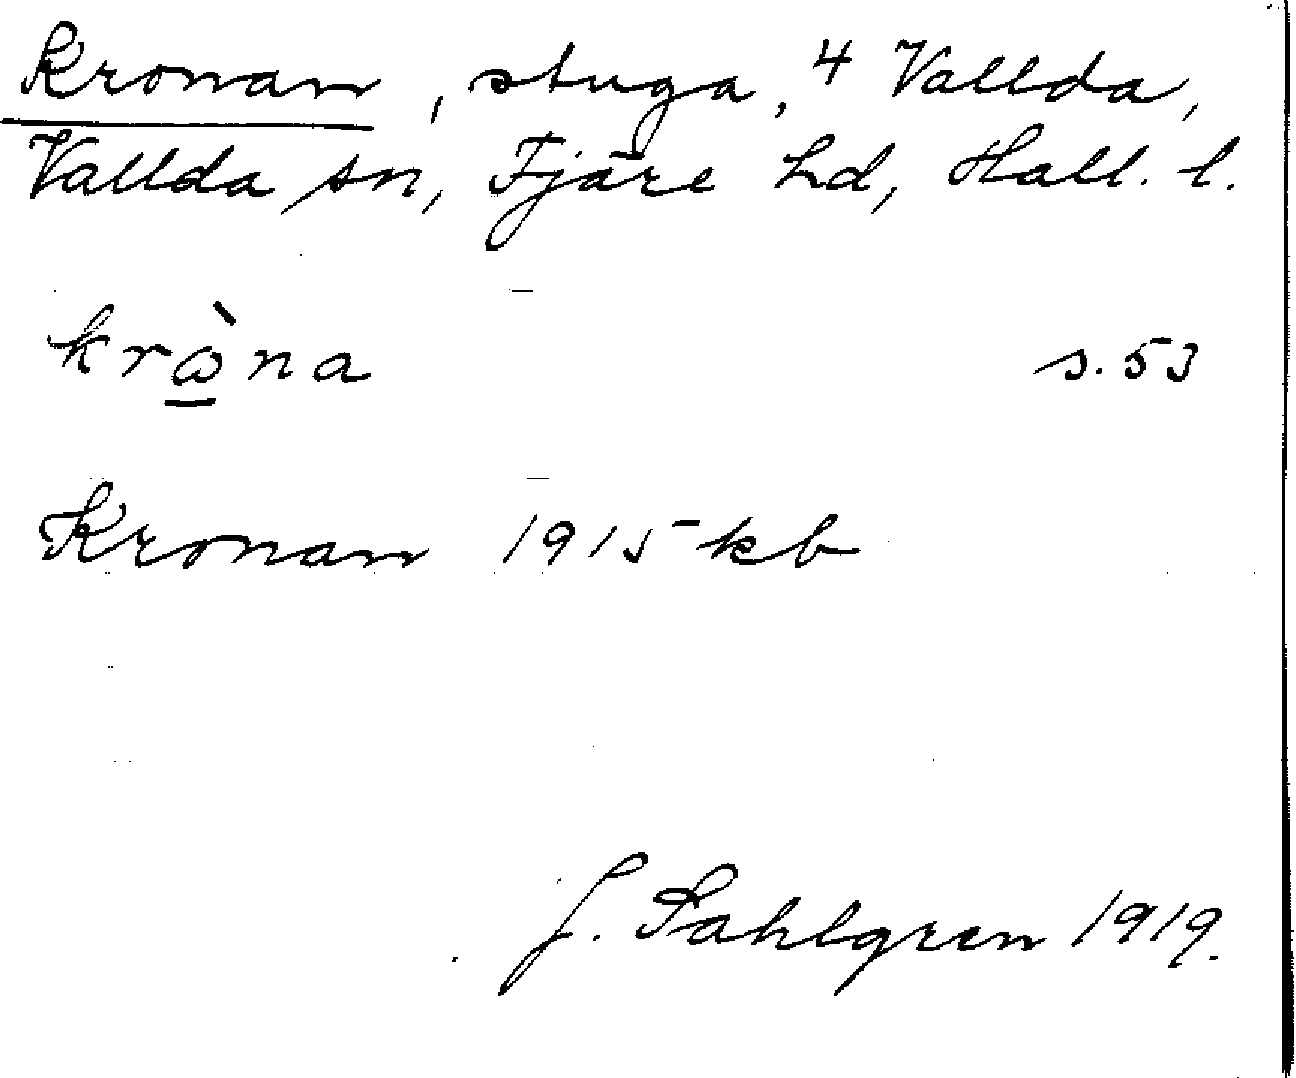 Kronan, stuga, 4 Vallda,
Vallda sn, Fjäre hd, Hall. l.
krὼ̲na s. 53
Kronan 1915 kb
J. Sahlgren 1919.